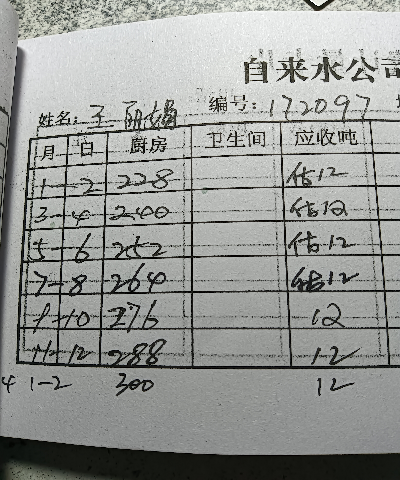 自来水公司
姓名: 王丽娟 编号: 172097
月 日 厨房 卫生间 应收吨
1-2 228 估12
3-4 240 估12
5-6 252 估12
7-8 264 估12
9-10 276 12
11-12 288 12
4 1-2 300 12